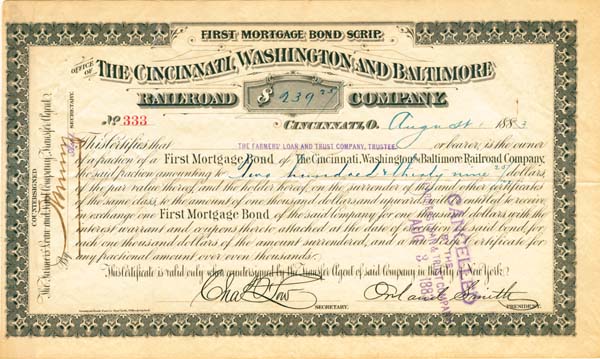 FIRST MORTGAGE BOND SCRIP.
OFFICE OF
THE CINCINNATI, WASHINGTON AND BALTIMORE
RAILROAD $ 239 25/ COMPANY.
No. 333
CINCINNATI, O. August 1 1883
This Certifies that THE FARMERS' LOAN AND TRUST COMPANY, TRUSTEE or bearer, is the owner
of a fraction of a First Mortgage Bond of The Cincinnati, Washington & Baltimore Railroad Company,
the said fraction amounting to Two hundred & thirty nine 25/ dollars
of the par value thereof, and the holder hereof, on the surrender of this and other certificates
of the same class, to the amount of one thousand dollars and upward, will be entitled to receive,
in exchange one First Mortgage Bond of the said company for one thousand dollars with the
interest warrant and coupons thereto attached at the date of issue or the said bonds for
such one thousand of the amount surrendered, and a new scrip certificate for
any fractional amount over even thousands.
This Certificate is valid only when countersigned by the Transfer Agent of said Company in the City of New York.
SECRETARY.
Orland Smith
PRESIDENT.
COUNTERSIGNED
The Farmers' Loan and Trust Company, Transfer Agent
By
SECRETARY.
CANCELLED
BY THE
FARMERS LOAN & TRUST COMPANY
AUG 3 188